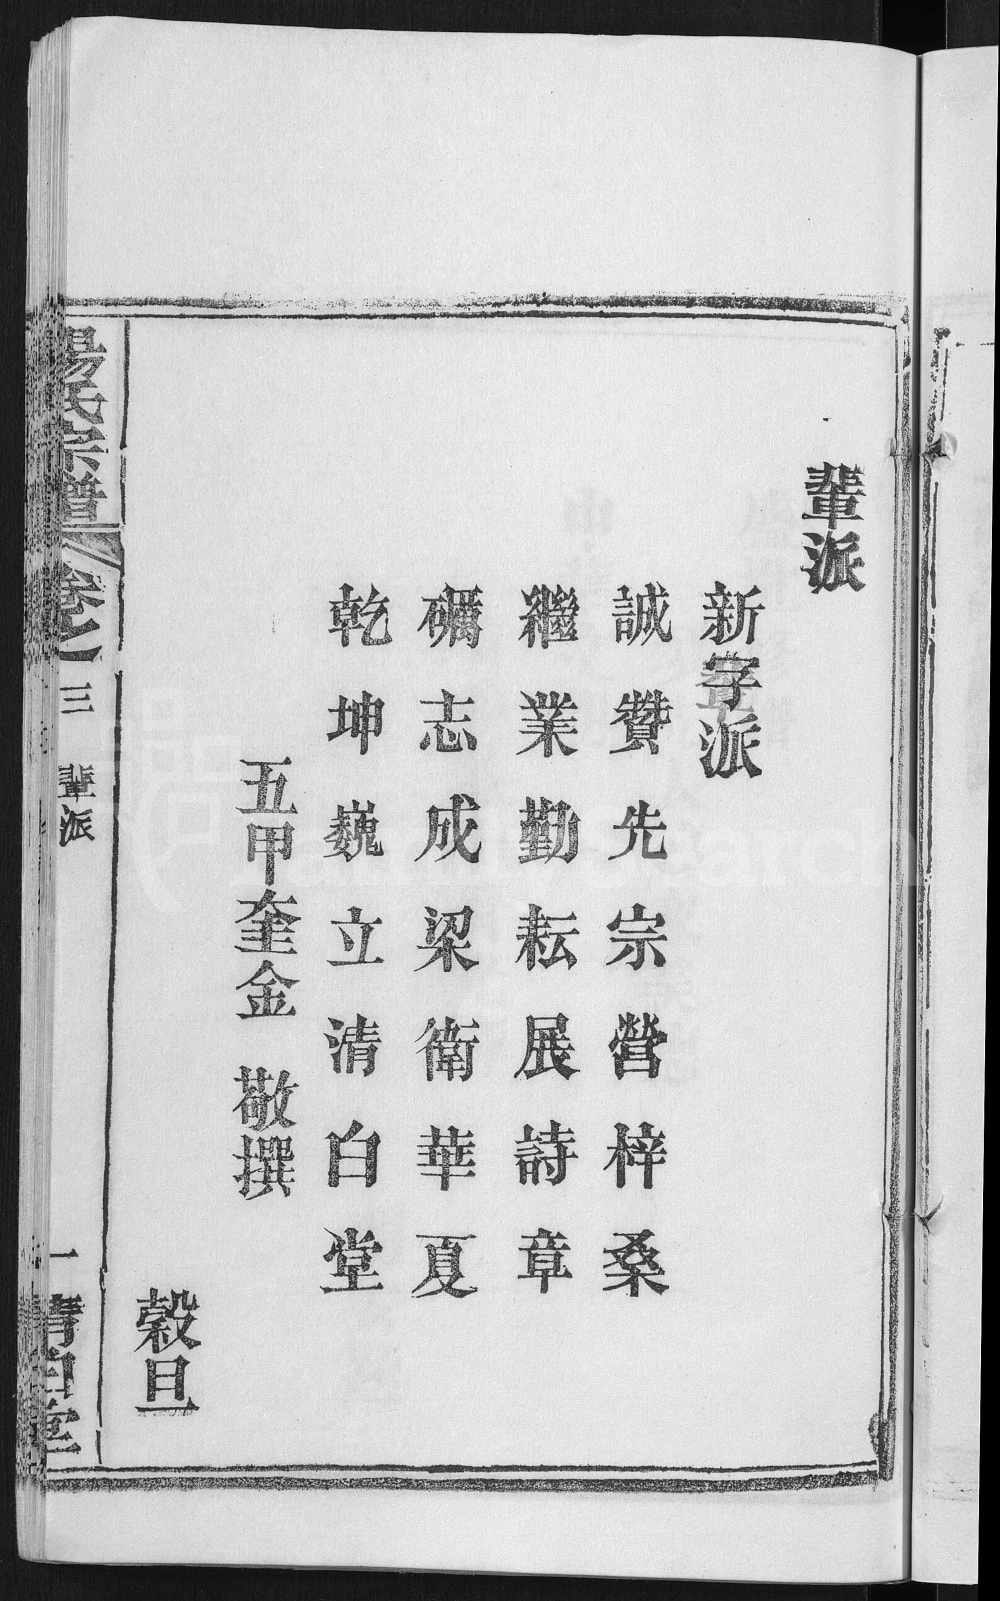 輩派
新字派
誠贊先宗營梓桑
繼業勤耘展詩章
礪志成梁衛華夏
乾坤巍立清白堂
五甲奎金 敬撰
穀旦
楊氏宗譜 卷之三 輩派 一 清白堂